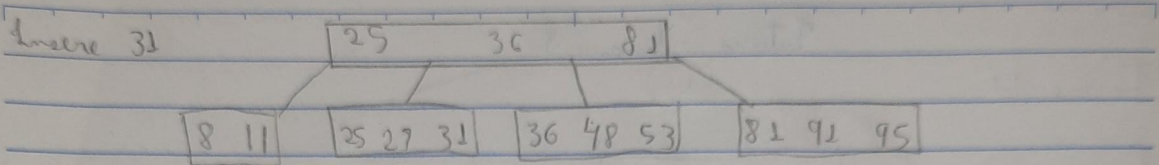 Insere 31 25 36 81
8 11 25 27 31 36 48 53 81 91 95